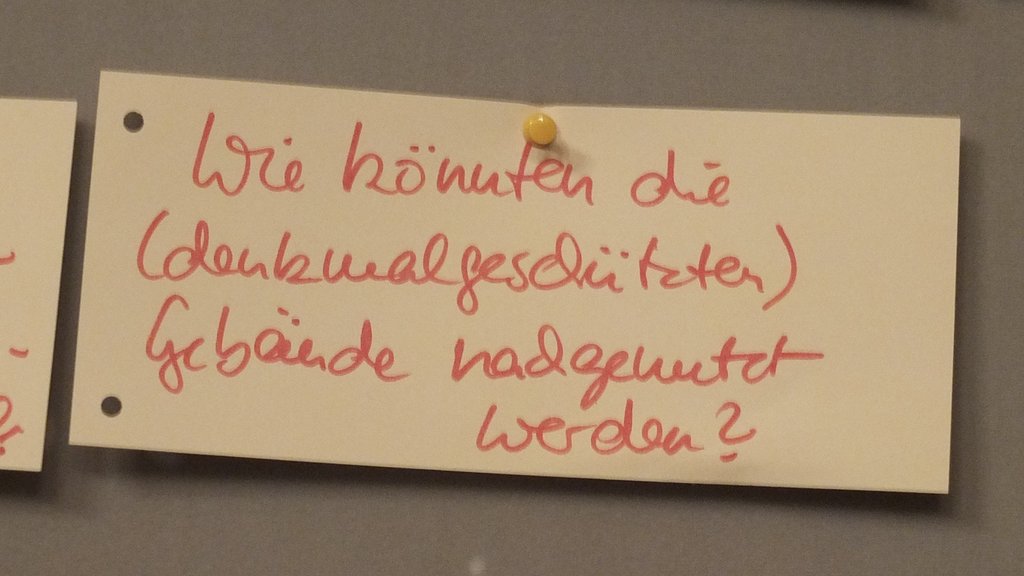 Wie könnten die
(denkmalgeschützten)
Gebäude nachgenutzt
werden?